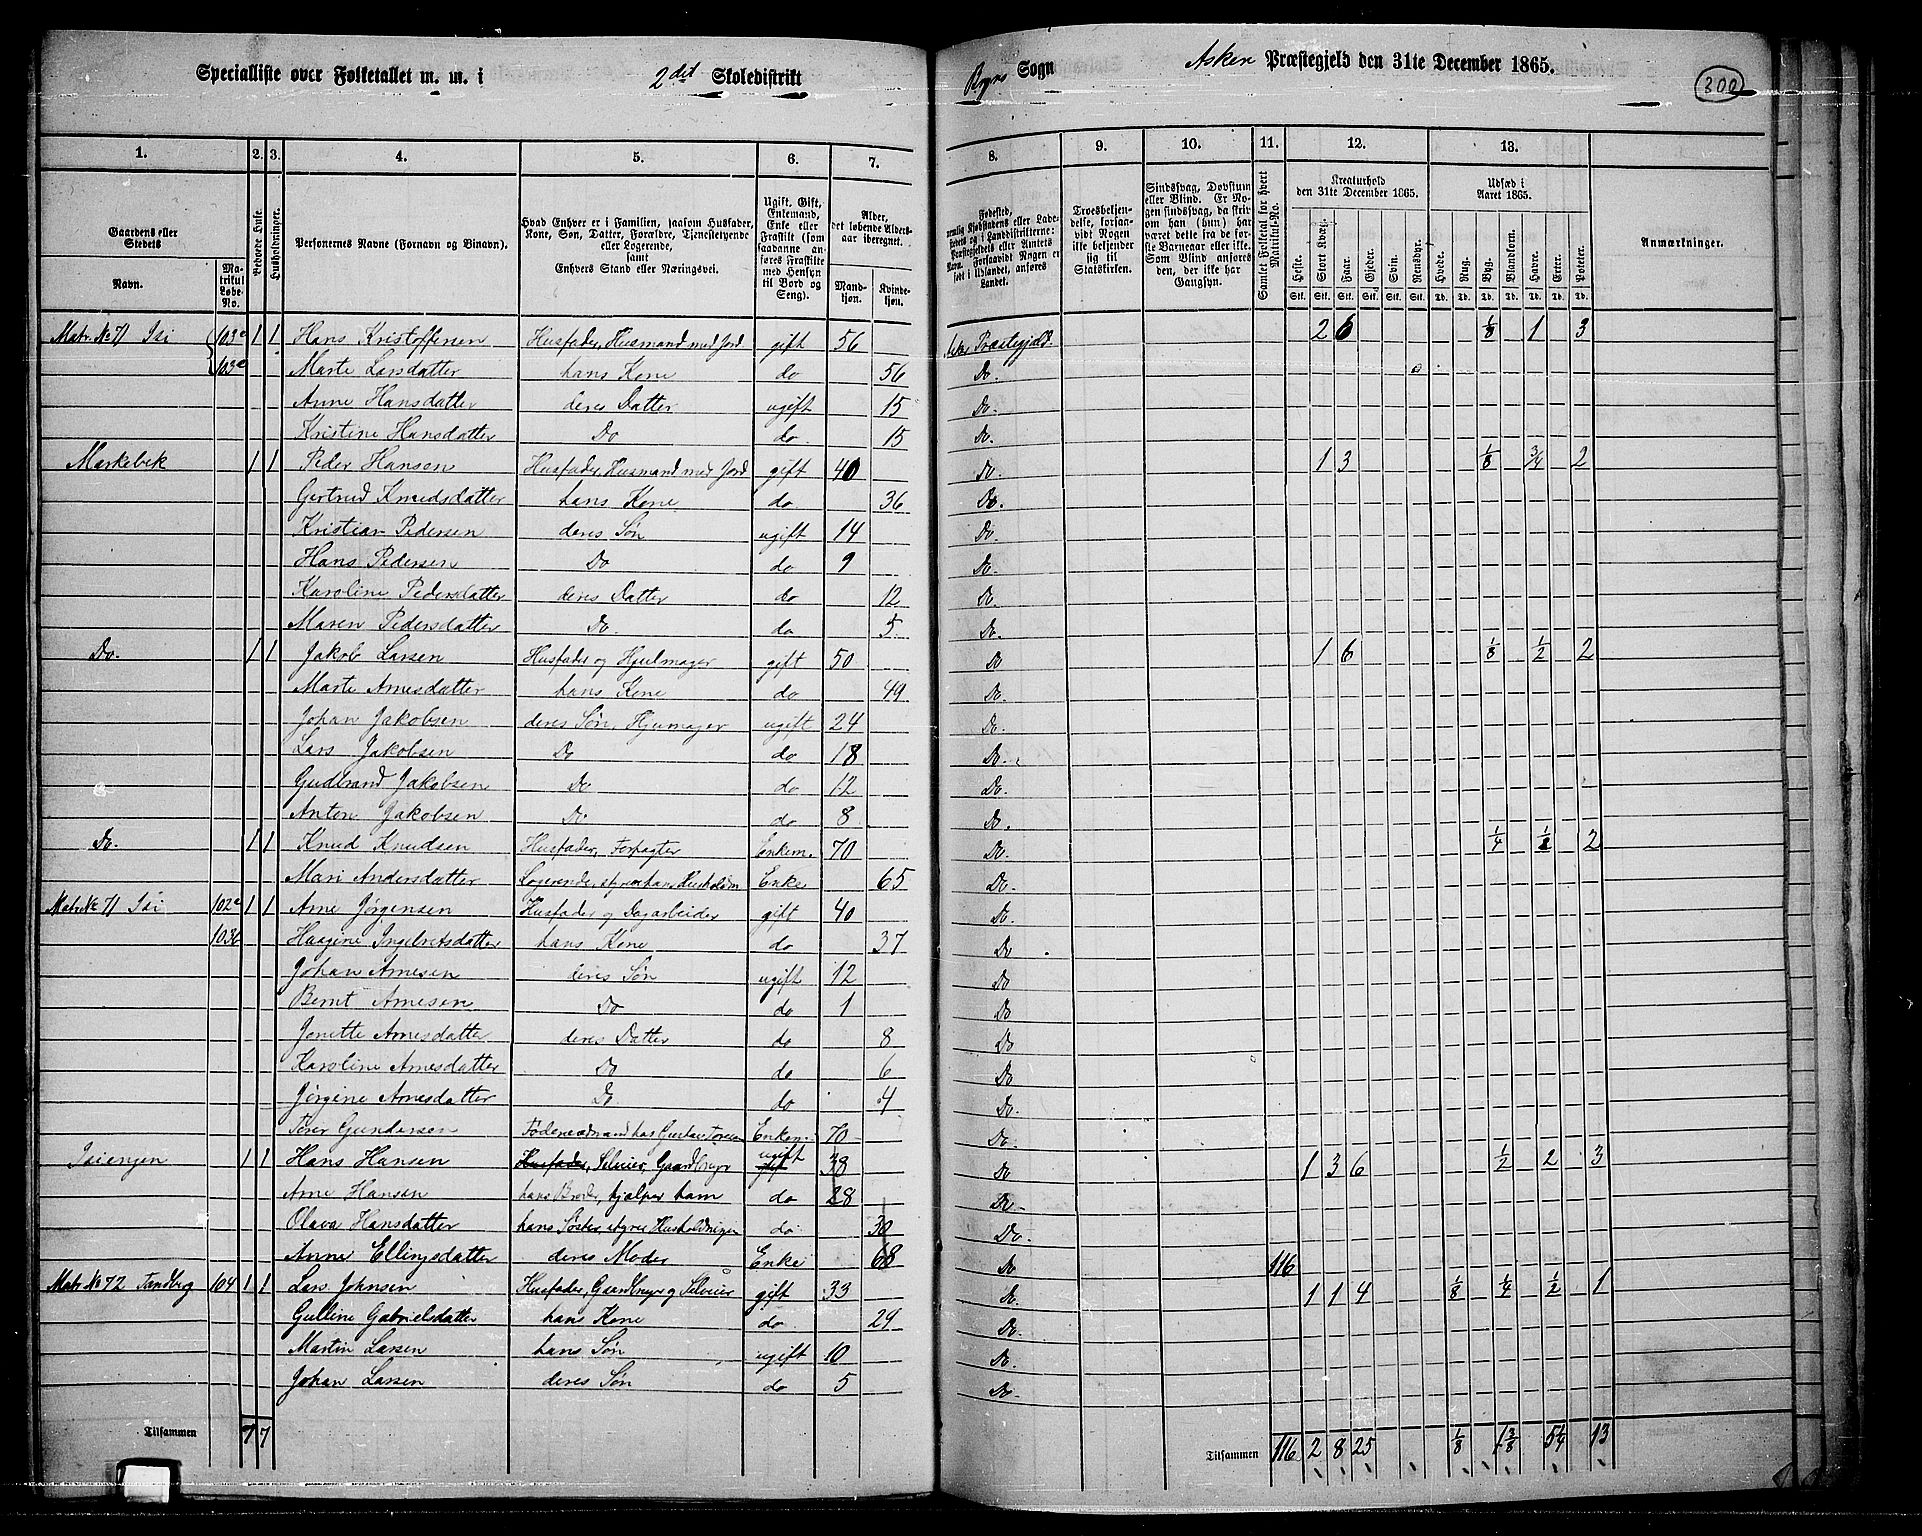 Specialliste over Folketallet m. m. i 2det Skoledistrikt
Sogn Asker Præstegjeld den 31te December 1865.
300
1. 2. 3. 4. 5. 6. 7. 8. 9. 10. 11. 12. 13.
Gaardens eller Stedets
Navn.
Matrikul Løbe-No.
Beboede Huse.
Husholdninger.
Personernes Navne (Fornavn og Binavn).
Hvad Enhver er i Familien, saasom Husfader, Kone, Søn, Datter, Forældre, Tjenestetyende eller Logerende, samt Enhvers Stand eller Næringsvei.
Ugift, Gift, Enkemand, Enke eller Fraskilt (som saadanne anføres Fraskilte med Hensyn til Bord og Seng).
Alder, det løbende Alders-aar iberegnet.
Mandkjøn. Kvindekjøn.
Troesbekjendelse, forsaavidt Nogen ikke bekjender sig til Statskirken.
Sindssvag, Døvstum eller Blind. Er Nogen sindssvag, da skrives om han (hun) har været dette fra de første Barneaar eller ei. Som Blind anføres den, der ikke har Gangsyn.
Samlet Folketal for hvert Matrikuls-No.
Kreaturhold den 31te December 1865.
Heste. Stort Kvæg. Faar. Gjeder. Svin. Rensdyr.
Udsæd i Aaret 1865.
Hvede. Rug. Byg. Blandkorn. Havre. Erter. Poteter.
Anmærkninger.
Matr. No 71 Isi 103a 1 1 Hans Kristoffersen Husfader, Husmand med Jord gift 56 Asker Præstegjeld 2 6 1/8 1 3
103e Marte Larsdatter hans Kone do 56 Do.
Anne Hansdatter deres Datter ugift 15 Do.
Kristine Hansdatter Do do 15 Do.
Markebek 1 1 Peder Hansen Husfader, Husmand med Jord gift 40 Do. 1 3 1/8 3/4 2
Gertrud Knudsdatter hans Kone do 36 Do.
Kristian Pedersen deres Søn ugift 14 Do.
Hans Pedersen Do do 9 Do.
Karoline Pedersdatter deres Datter do 12 Do.
Maren Pedersdatter Do. do 5 Do.
Do. 1 1 Jakob Larsen Husfader og Hjulmager gift 50 Do 1 6 1/8 1/2 2
Marte Arnesdatter hans Kone do 49 Do.
Johan Jakobsen deres Søn, Hjumager ugift 24 Do.
Lars Jakobsen Do do 18 Do.
Gudbrand Jakobsen Do do 12 Do.
Anton Jakobsen Do do 8 Do.
Do. 1 1 Knud Knudsen Husfader, Forpagter Enkem. 70 Do. 1/4 1/2 2
Mari Andersdatter Logerende, styrer hans Husholdn Enke 65 Do.
Matr No 71 Isi 102a 1 1 Arne Jørgensen Husfader og Dagarbeider gift 40 Do.
103c Haagene Ingebretsdatter hans Kone do 37 Do
Johan Arnesen deres Søn ugift 12 Do
Bernt Arnesen Do do 1 Do
Jonette Arnesdatter deres Datter do 8 Do
Karoline Arnesdatter Do do 6 Do
Jørgine Arnesdatter Do. do 4 Do.
Gundersen Enkem. 70 Do.
Isiengen 1 1 Hans Hansen Husfader, Selveier, Gaardbruger ugift gift 38 Do 1 3 6 1/2 2 3
Arne Hansen hans Broder, hjælper ham do 28 Do
Olava Hansdatter hans Søster, styrer Husholdningen do 30 Do.
Anne Ellingsdatter deres Moder Enke 68 Do 116
Matr No 72 Tandberg 104 1 1 Lars Johnsen Husfader, Gaardbruger og Selveier gift 33 Do. 1 1 4 1/8 1/4 1/2 1
Gulline Gabrielsdatter hans Kone do 29 Do.
Martin Larsen hans Søn ugift 10 Do.
Johan Larsen deres Søn do 5 Do.
Tilsammen 7 7
Tilsammen 116 2 8 25 1/8 1 3/8 5 1/4 13